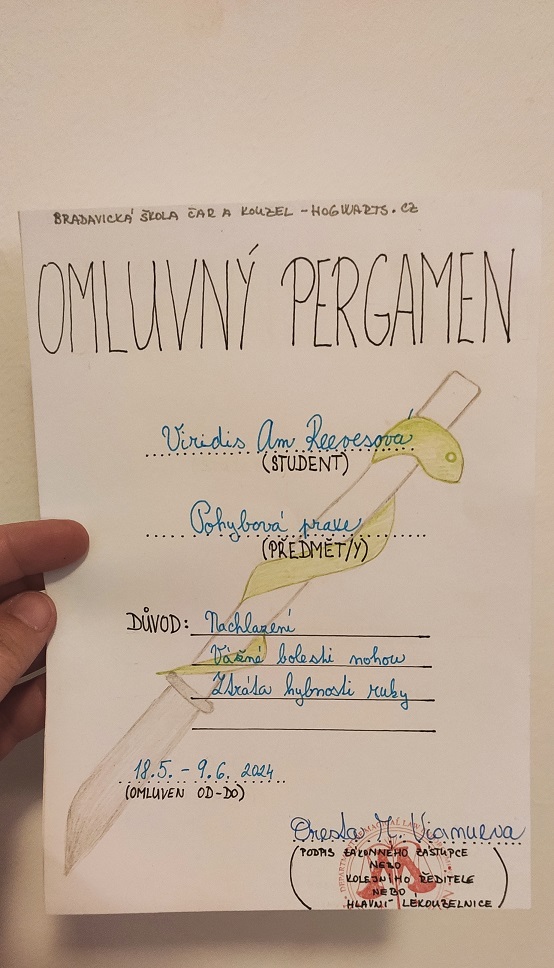 BRADAVICKÁ ŠKOLA ČAR A KOUZEL - HOGWARTS.CZ
OMLUVNÝ PERGAMEN
Viridis Am Reevesová
(STUDENT)
Pohybová praxe
(PŘEDMĚT/Y)
DŮVOD: Nachlazení
Vážné bolesti nohou
Ztráta hybnosti ruky
18.5. - 9.6. 2024
(OMLUVEN OD-DO)
Oresta M.
(PODPIS ZÁKONNÉHO ZÁSTUPCE
NEBO
KOLEJNÍHO ŘEDITELE
NEBO
HLAVNÍ LÉKOUZELNICE)